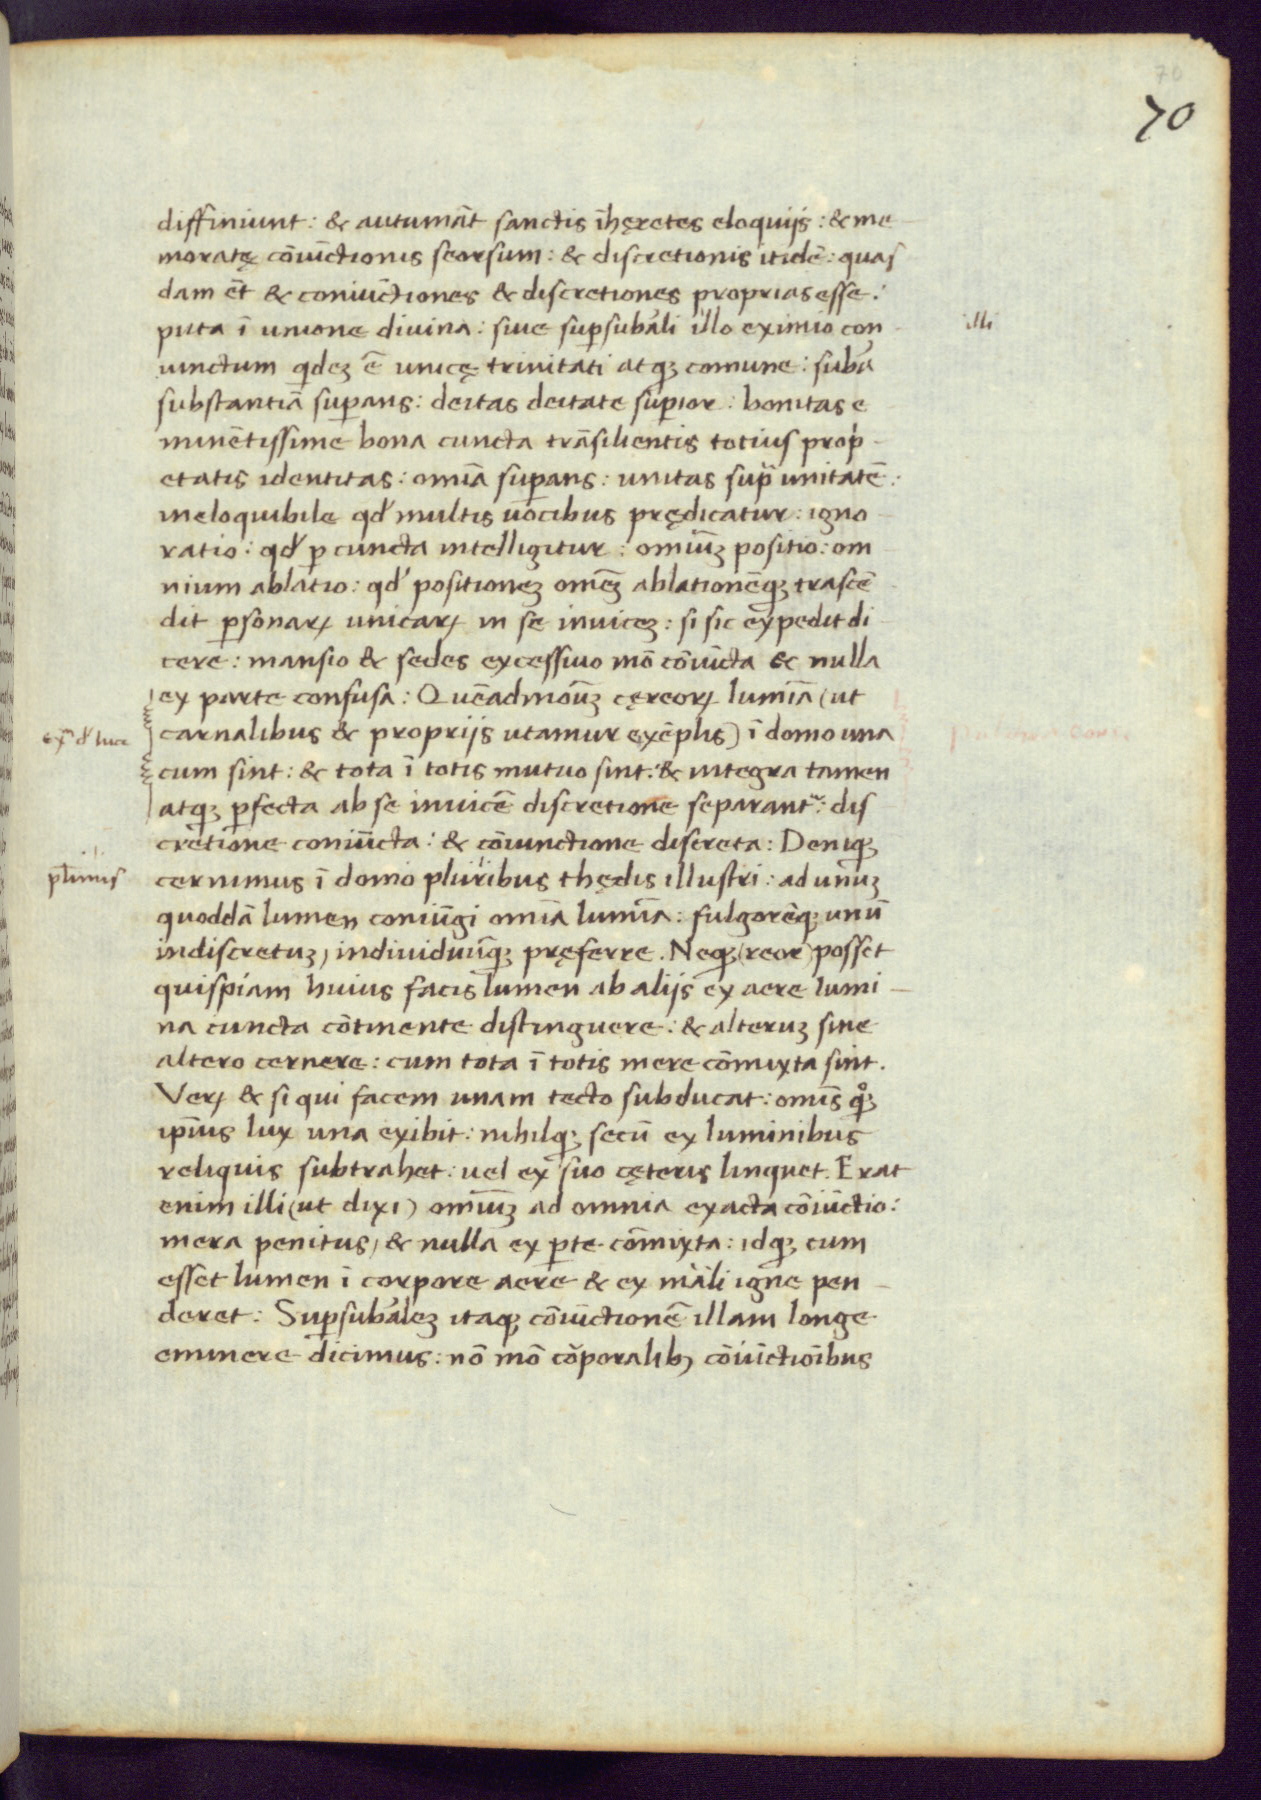 70
70
diffiniunt: & autumāt sanctis īhęretes eloquijs: & me
moratę cōiūctionis seorsum: & discretionis itidē: quas
dam ēt & coniūctiones & discretiones proprias esse:
puta ī unione diuina: siue supsubāli illo eximio con
illi
iunctum qdeꝫ ē unicę trinitati atqꝫ comune: subā
substantiā supans: deitas deitate supior: bonitas e
minētissime bona cuncta trāsilientis totius prop
etatis identitas: omīa supans: unitas supͣ unitatē:
ineloquibile qd' multis uocibus prędicatur: igno
ratio: qd' p cuncta intelligitur: omiūꝫ positio: om
nium ablatio: qd' positioneꝫ omēꝫ ablationēqꝫ trascē
dit psonaꝝ unicaꝝ in se inuiceꝫ: si sic expedit di
cere: mansio & sedes excessiuo mō cōiūcta & nulla
ex parte confusa: Quēadmoūꝫ cęreoꝝ lumīa (ut
carnalibus & proprijs utamur exēplis) ī domo una
exᵐ d' luce
cum sint: & tota ī totis mutuo sint: & integra tamen
atqꝫ pfecta ab se inuicē discretione separantᷣ: dis
cretione coniūcta: & cōiunctione discreta: Deniqꝫ
cernimus ī domo pluribus thędis illustri: ad unūꝫ
plīmis
quoddā lumen coniūgi omīa lumīa: fulgorēqꝫ unū
indiscretuꝫ, indiuiduūqꝫ pręferre. Neqꝫ (reor) posset
quispiam huius facis lumen ab alijs ex aere lumi
na cuncta cōtinente distinguere: & alteruꝫ sine
altero cernere: cum tota ī totis mere cōmixta sint.
Veꝝ & si qui facem unam tecto subducat: omīs qͦqꝫ
ipīus lux una exibit: nihilqꝫ secū ex luminibus
reliquis subtrahet: uel ex suo cęteris linquet. Erat
enim illi (ut dixi) omiūꝫ ad omnia exacta cōiūctio:
mera penitus, & nulla ex pte cōmixta: idqꝫ cum
esset lumen ī corpore aere & ex māli igne pen
deret: Supsubāleꝫ itaqꝫ cōiūctionē illam longe
eminere dicimus: nō mō cōporalibꝫ cōiūctiōibus